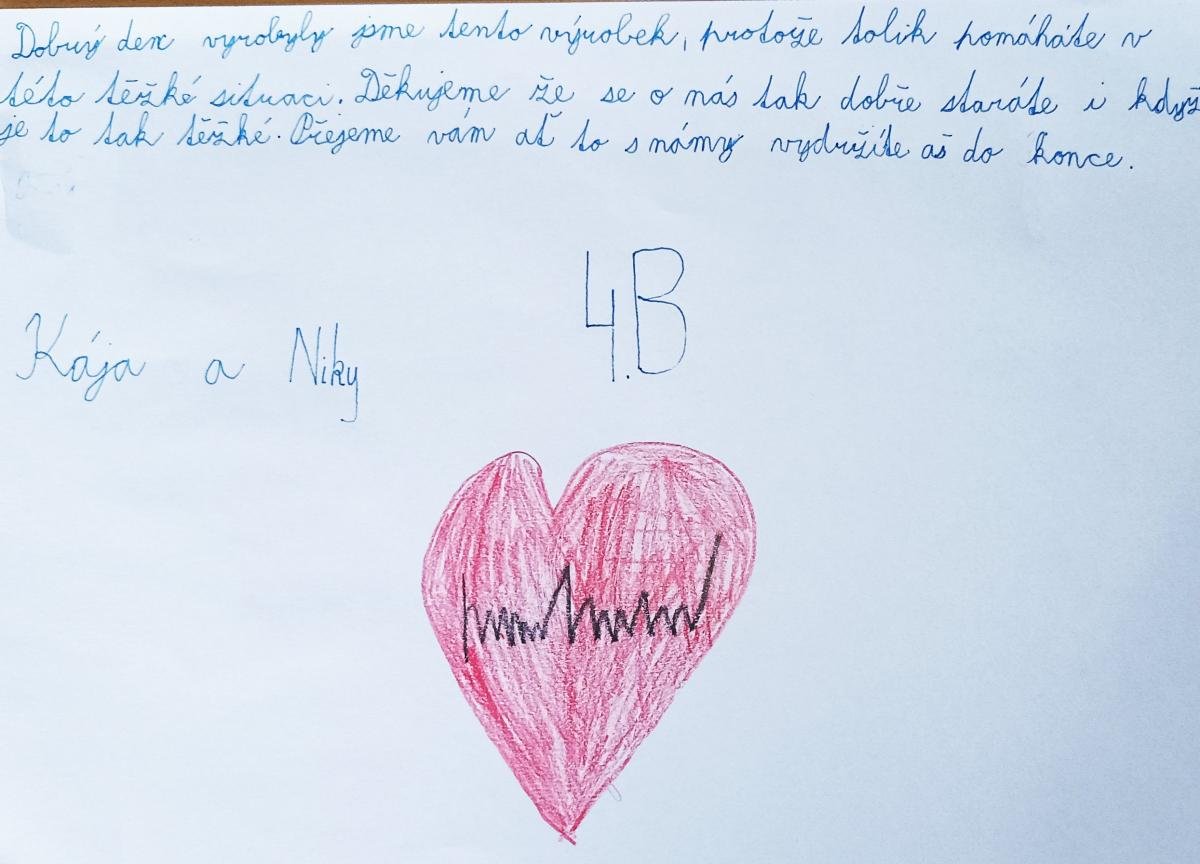 Dobrý den vyrobyly jsme tento výrobek, protože tolik pomáháte v
této těžké situaci. Děkujeme že se o nás tak dobře staráte i když
je to tak těžké. Přejeme vám ať to s námy vydržíte aš do konce.
4.B
Kája a Niky